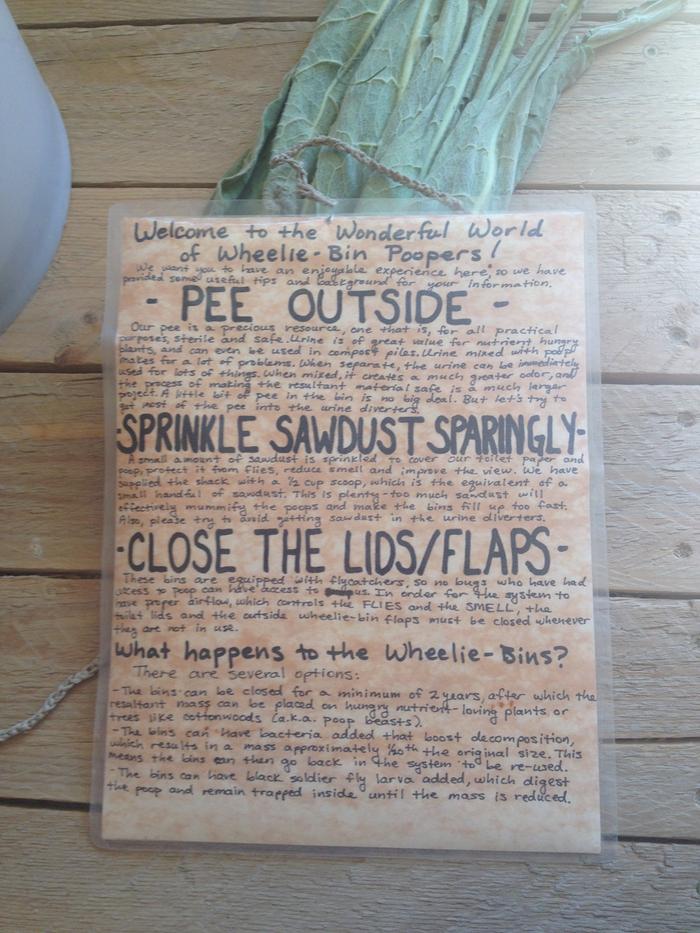 Welcome to the Wonderful World
of Wheelie-Bin Poopers!
We want you to have an enjoyable experience here, so we have
provided some useful tips and background for your information.
- PEE OUTSIDE -
Our pee is a precious resource, one that is, for all practical
purposes, sterile and safe. Urine is of great value for nutrient hungry
plants, and can even be used in compost piles. Urine mixed with poop
makes for a lot of problems. When separate, the urine can be immediately
used for lots of things. When mixed, it creates a much greater odor, and
the process of making the resultant material safe is a much larger
project. A little bit of pee in the bin is no big deal. But let's try to
get most of the pee into the urine diverters.
-SPRINKLE SAWDUST SPARINGLY-
A small amount of sawdust is sprinkled to cover our toilet paper and
poop, protect it from flies, reduce smell and improve the view. We have
supplied the shack with a 1/2 cup scoop, which is the equivalent of a
small handful of sawdust. This is plenty - too much sawdust will
effectively mummify the poops and make the bins fill up too fast.
Also, please try to avoid getting sawdust in the urine diverters.
-CLOSE THE LIDS/FLAPS-
These bins are equipped with flycatchers, so no bugs who have had
access to poop can have access to us. In order for the system to
have proper airflow, which controls the FLIES and the SMELL, the
toilet lids and the outside wheelie-bin flaps must be closed whenever
they are not in use.
What happens to the Wheelie-Bins?
There are several options:
- The bins can be closed for a minimum of 2 years, after which the
resultant mass can be placed on hungry nutrient-loving plants or
trees like cottonwoods (a.k.a. poop beasts).
- The bins can have bacteria added that boost decomposition,
which results in a mass approximately 1/20th the original size. This
means the bins can then go back in the system to be re-used.
- The bins can have black soldier fly larva added, which digest
the poop and remain trapped inside until the mass is reduced.